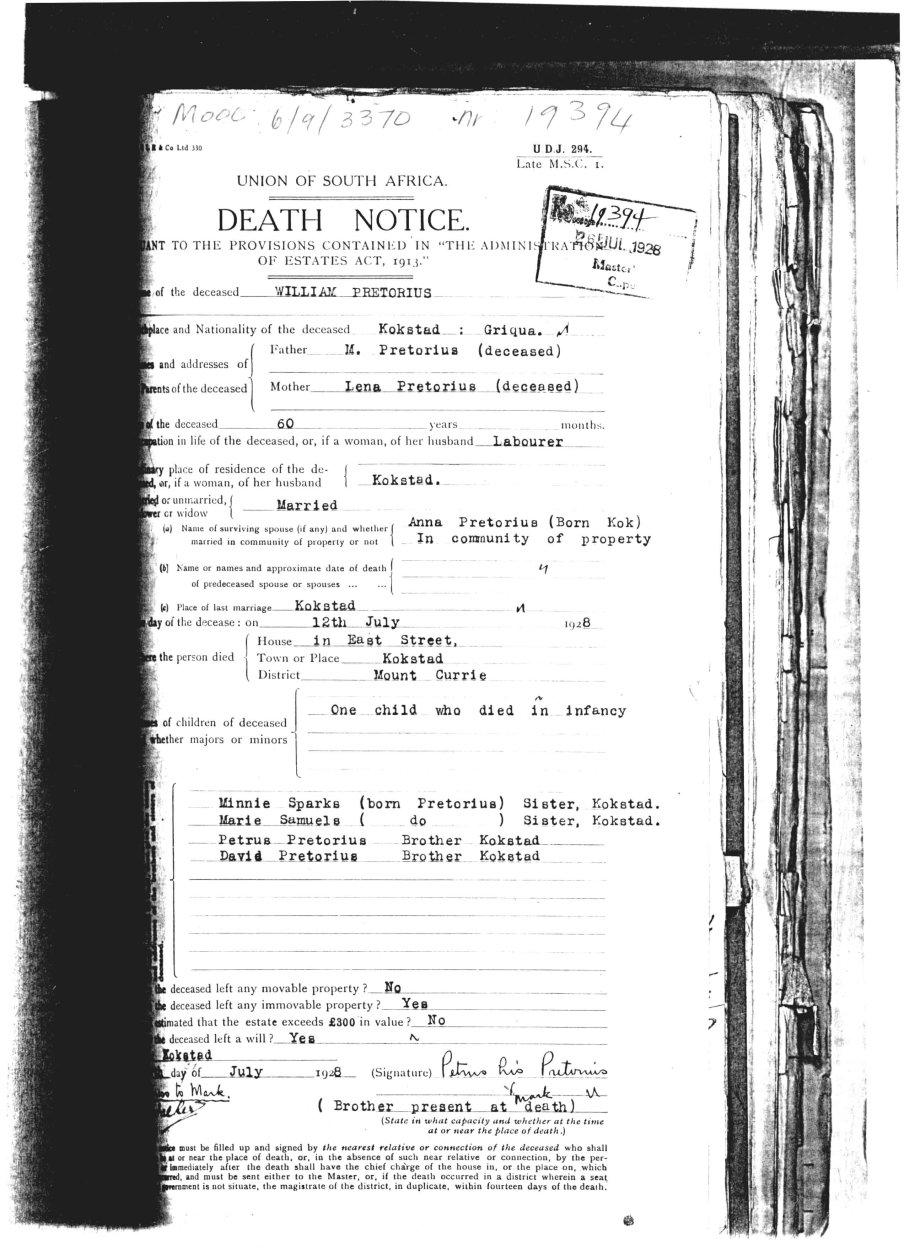 MOOC 6/9/3370 nr 19394
& Co Ltd 330
U D.J. 294.
Late M.S.C. 1.
UNION OF SOUTH AFRICA.
DEATH NOTICE.
No. 19394
26 JUL 1928
Master'
ANT TO THE PROVISIONS CONTAINED IN "THE ADMINISTRATION
OF ESTATES ACT, 1913."
of the deceased WILLIAM PRETORIUS
place and Nationality of the deceased Kokstad : Griqua.
Father M. Pretorius (deceased)
and addresses of
Parents of the deceased Mother Lena Pretorius (deceased)
of the deceased 60 years months.
pation in life of the deceased, or, if a woman, of her husband Labourer
nary place of residence of the de-
ed, or, if a woman, of her husband Kokstad.
ried or unmarried,
ower or widow Married
(a) Name of surviving spouse (if any) and whether Anna Pretorius (Born Kok)
married in community of property or not In community of property
(b) Name or names and approximate date of death
of predeceased spouse or spouses ... ...
(c) Place of last marriage Kokstad
day of the decease : on 12th July 1928
House in East Street,
ere the person died Town or Place Kokstad
District Mount Currie
One child who died in infancy
es of children of deceased
whether majors or minors
Minnie Sparks (born Pretorius) Sister, Kokstad.
Marie Samuels ( do ) Sister, Kokstad.
Petrus Pretorius Brother Kokstad
David Pretorius Brother Kokstad
the deceased left any movable property ? No
the deceased left any immovable property ? Yes
estimated that the estate exceeds £300 in value ? No
the deceased left a will ? Yes
Kokstad
day of July 1928 (Signature) Petrus his Pretorius
to Mark. X mark
( Brother present at death)
(State in what capacity and whether at the time
at or near the place of death.)
must be filled up and signed by the nearest relative or connection of the deceased who shall
at or near the place of death, or, in the absence of such near relative or connection, by the per-
immediately after the death shall have the chief charge of the house in, or the place on, which
rred, and must be sent either to the Master, or, if the death occurred in a district wherein a seat
government is not situate, the magistrate of the district, in duplicate, within fourteen days of the death.